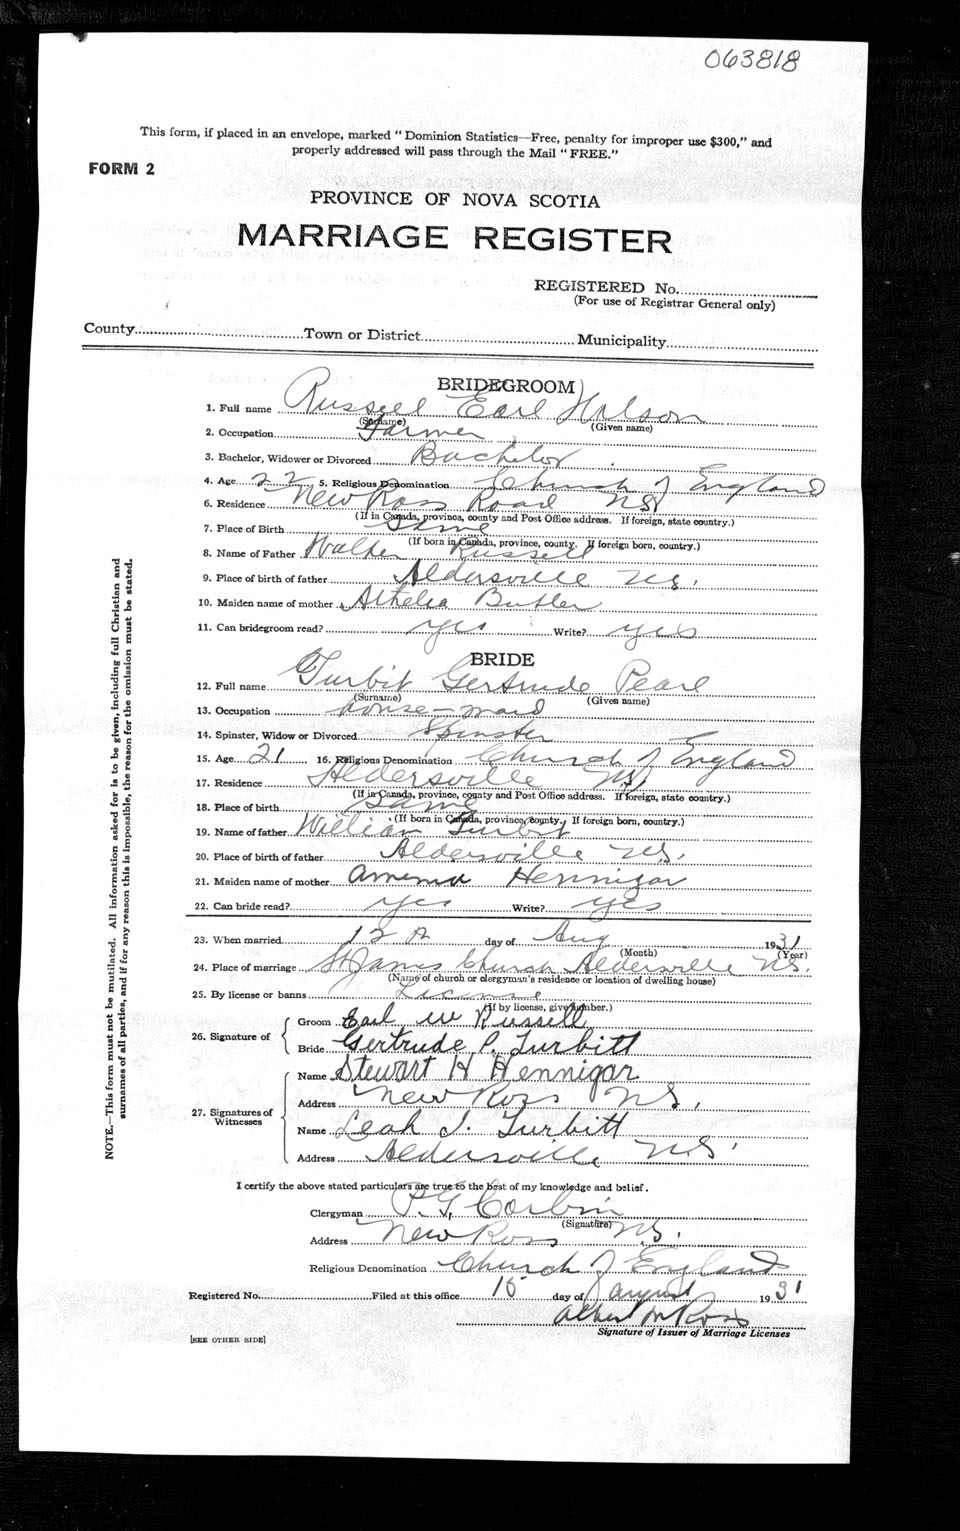 063818
This form, if placed in an envelope, marked "Dominion Statistics—Free, penalty for improper use $300," and
properly addressed will pass through the Mail "FREE."
FORM 2
PROVINCE OF NOVA SCOTIA
MARRIAGE REGISTER
REGISTERED No.
(For use of Registrar General only)
County Town or District Municipality
BRIDEGROOM
1. Full name Russell Earl
(Surname) (Given name)
2. Occupation Farmer
3. Bachelor, Widower or Divorced Bachelor
4. Age 22 5. Religious Denomination Church of England
6. Residence New Ross Road NS
(If in Canada, province, county and Post Office address. If foreign, state country.)
7. Place of Birth Same
(If born in Canada, province, county. If foreign born, country.)
8. Name of Father Walter Russell
9. Place of birth of father Aldersville N.S.
10. Maiden name of mother Athelia Butler
11. Can bridegroom read? yes Write? yes
BRIDE
12. Full name Turbit Gertrude Pearl
(Surname) (Given name)
13. Occupation house-maid
14. Spinster, Widow or Divorced Spinster
15. Age 21 16. Religious Denomination Church of England
17. Residence Aldersville NS
(If in Canada, province, county and Post Office address. If foreign, state country.)
18. Place of birth Same
(If born in Canada, province, county. If foreign born, country.)
19. Name of father William Turbit
20. Place of birth of father Aldersville N.S.
21. Maiden name of mother Hennigar
22. Can bride read? yes Write? yes
23. When married 12 day of Aug 1931
(Month) (Year)
24. Place of marriage St James Church Aldersville N.S.
(Name of church or clergyman's residence or location of dwelling house)
25. By license or banns License
(If by license, give number.)
26. Signature of Groom Earl W Russell
Bride Gertrude P. Turbitt
27. Signatures of Witnesses Name Stewart H Hennigar
Address New Ross N.S.
Name Leah J. Turbitt
Address Aldersville N.S.
I certify the above stated particulars are true to the best of my knowledge and belief.
Clergyman P.G. Corbin
(Signature)
Address New Ross N.S.
Religious Denomination Church of England
Registered No. Filed at this office 15 day of August 1931
Albert M Ross
Signature of Issuer of Marriage Licenses
[SEE OTHER SIDE]
NOTE.—This form must not be mutilated. All information asked for is to be given, including full Christian and
surnames of all parties, and if for any reason this is impossible, the reason for the omission must be stated.